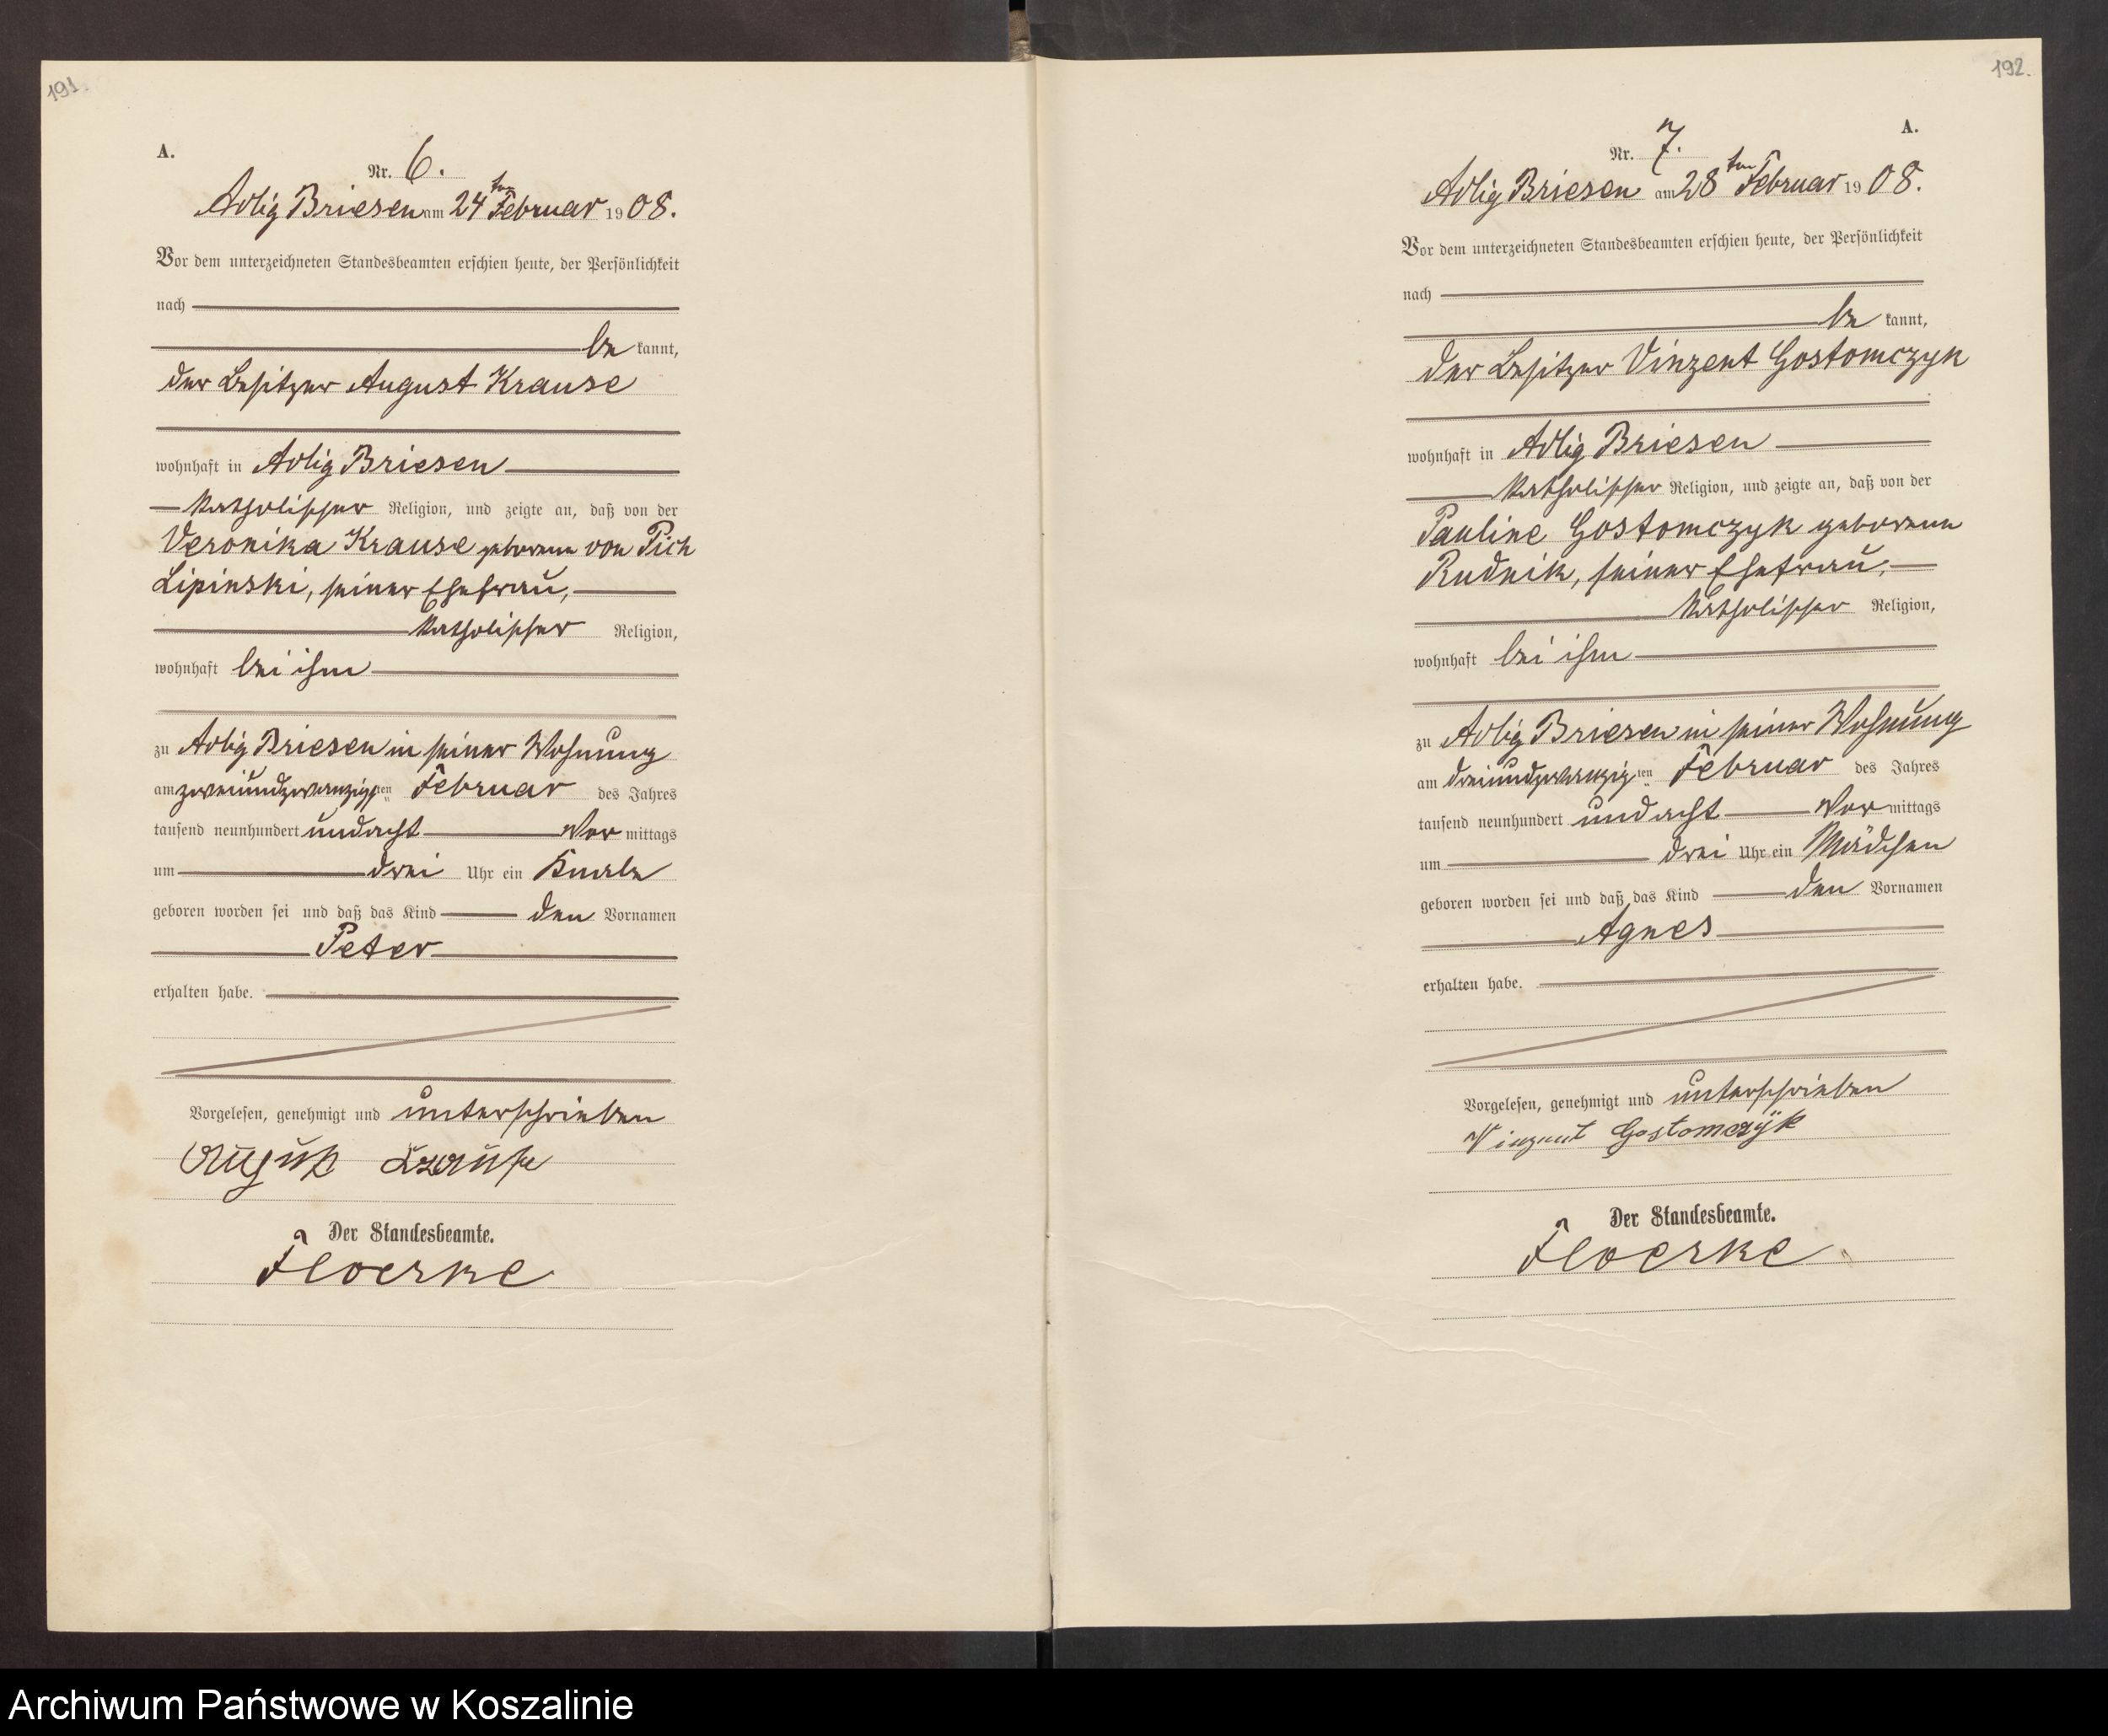 191.
A.
Nr. 6.
Adlig Briesen am 24ten Februar 1908.
Vor dem unterzeichneten Standesbeamten erschien heute, der Persönlichkeit
nach
be kannt,
der Besitzer August Krause
wohnhaft in Adlig Briesen
katholischer Religion, und zeigte an, daß von der
Veronika Krause geborene von Pich
Lipinski, seiner Ehefrau,
katholischer Religion,
wohnhaft bei ihm
zu Adlig Briesen in seiner Wohnung
am zweiundzwanzigsten Februar des Jahres
tausend neunhundert und acht Vor mittags
um drei Uhr ein Knabe
geboren worden sei und daß das Kind den Vornamen
Peter
erhalten habe.
Vorgelesen, genehmigt und unterschrieben
August Krause
Der Standesbeamte.
Floerke
192.
A.
Nr. 7.
Adlig Briesen am 28ten Februar 1908.
Vor dem unterzeichneten Standesbeamten erschien heute, der Persönlichkeit
nach
be kannt,
der Besitzer Vinzent Gostomczyk
wohnhaft in Adlig Briesen
katholischer Religion, und zeigte an, daß von der
Pauline Gostomczyk geborene
Rudnik, seiner Ehefrau,
katholischer Religion,
wohnhaft bei ihm
zu Adlig Briesen in seiner Wohnung
am dreiundzwanzigten Februar des Jahres
tausend neunhundert und acht Vor mittags
um drei Uhr ein Mädchen
geboren worden sei und daß das Kind den Vornamen
Agnes
erhalten habe.
Vorgelesen, genehmigt und unterschrieben
Vinzent Gostomczÿk
Der Standesbeamte.
Floerke
Archiwum Państwowe w Koszalinie